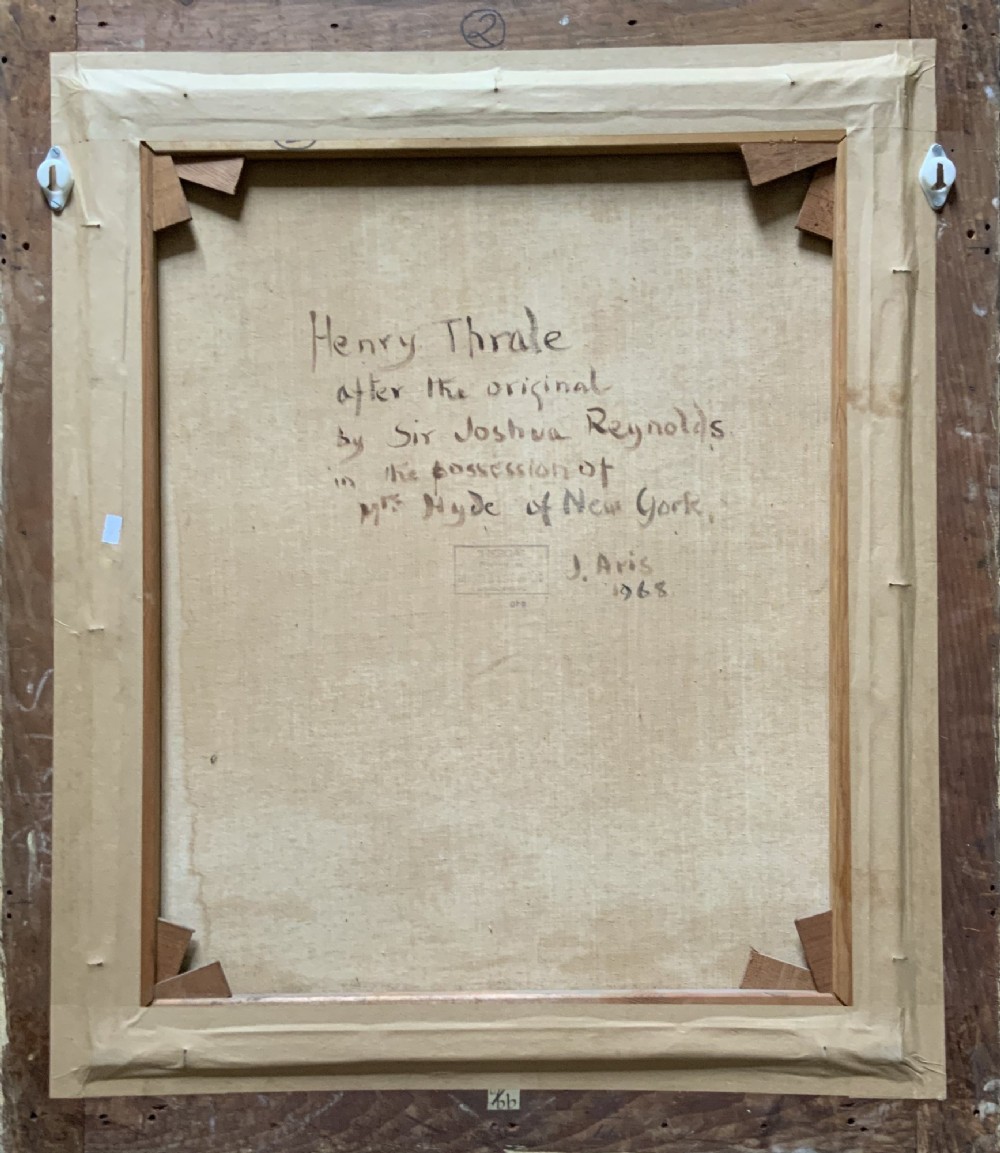 2
Henry Thrale
after the original
by Sir Joshua Reynolds
in the possession of
Mrs Hyde of New York.
J. Aris
1968